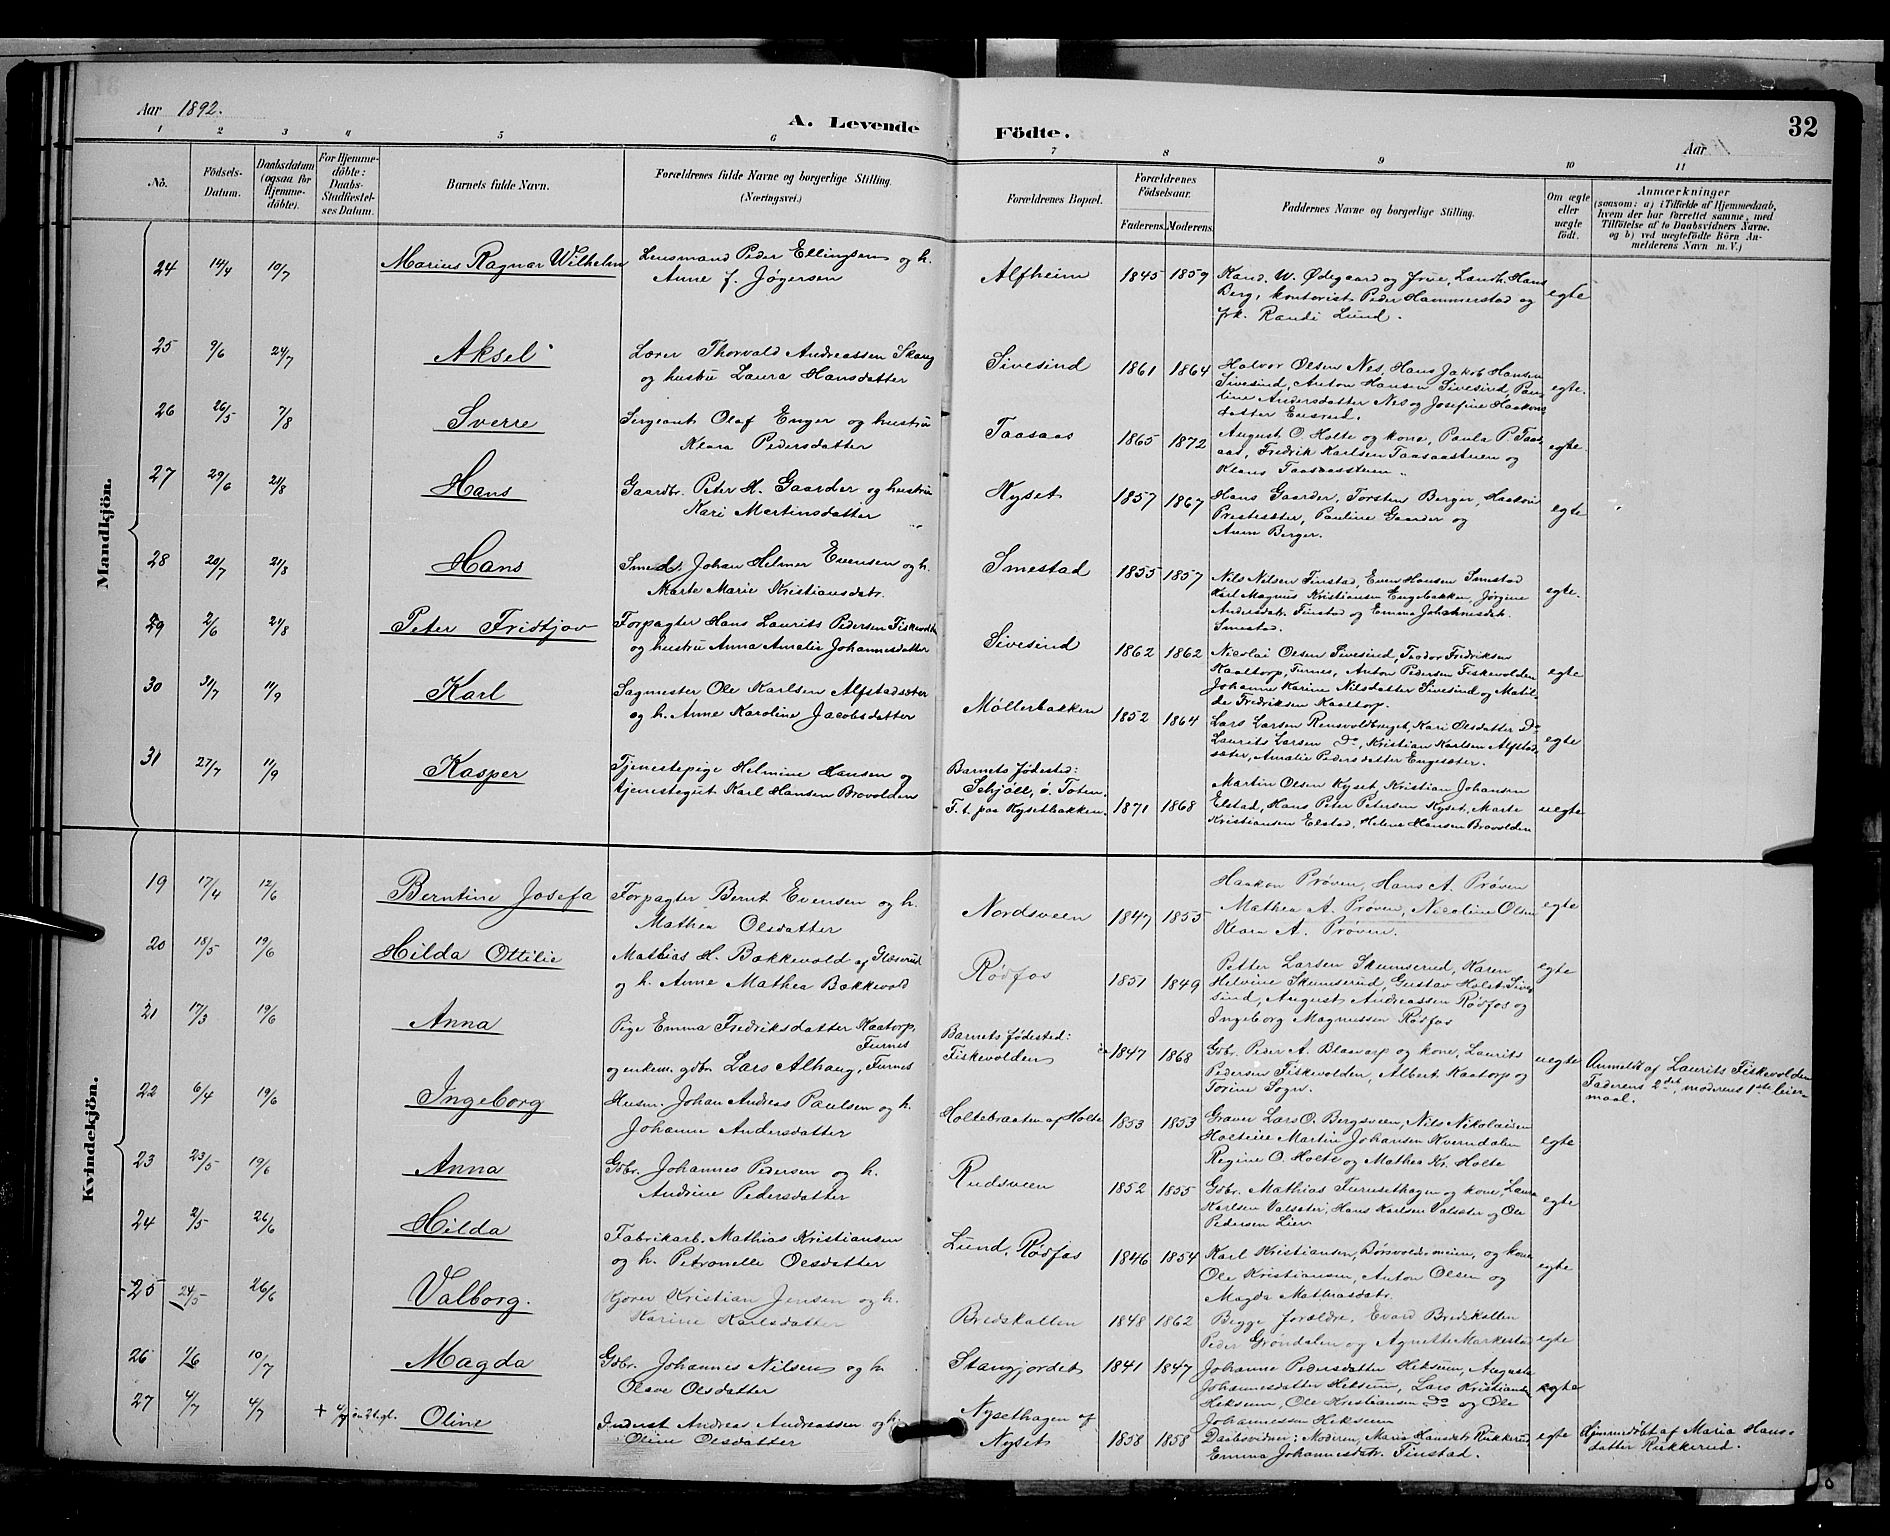 Aar 1892.
A. Levende Födte.
Aar
32
1 2 3 4 5 6 7 8 9 10 11
No.
Födsels-Datum.
Daabsdatum (ogsaa for Hjemme-döbte).
For Hjemme-döbte: Daabs-Stadfæstel-ses Datum.
Barnets fulde Navn.
Forældrenes fulde Navne og borgerlige Stilling. (Næringsvei.)
Forældrenes Bopæl.
Forældrenes Födselsaar.
Faderens. Moderens.
Faddernes Navne og borgerlige Stilling.
Om ægte eller uægte födt.
Anmærkninger
(saasom: a) i Tilfælde af Hjemmedaab, hvem der har forrettet samme, med Tilföielse af to Daabsvidners Navne, og b) ved uægtefödte Börn An-melderens Navn m. V.)
Mandkjön.
24 14/4 10/7 Marius Ragnar Wilhelm
Lensmand Peder Ellingsen og h.
Anne f. Jørgensen
Alfheim 1845 1859
Kand. W. Ødegaard og frue, Landh. Hans
Berg, kontorist Peder Hammerstad og
frk. Randi Lund.
egte
25 9/6 24/7 Aksel
Lærer Thorvald Andreassen Skaug
og hustru Laura Hansdatter
Sivesind 1861 1864
Halvor Olsen Nes, Hans Jakob Hansen
Sivesind, Anton Hansen Sivesind, Pau-
line Andersdatter Nes og Josefine Haakons
datter Enesred.
egte.
26 26/5 7/8 Sverre
Sergeant Olaf Enger og hustru
Klara Pedersdatter
Taasaas 1865 1872
August O. Holte og kone, Paula P. Taas
aas, Fredrik Karlsen Taasaasteien og
Klaus Taasaasteien
egte.
27 29/6 21/8 Hans
Gaardbr. Peter H. Gaarder og hustru
Kari Martinsdatter
Kyset 1857 1867
Hans Gaarder, Torsten Berger, Haakon
Prestesæter, Pauline Gaarder og
Anna Berger.
egte
28 20/7 21/8 Hans
Smed. Johan Helmer Evensen og h.
Marte Marie Kristiansdatr.
Smestad 1855 1857
Nils Nilsen Finstad, Even Hansen Smestad
Karl Magnus Kristiansen Engebakken, Jørgine
Andersdatr. Finstad og Emma Johannesdatr.
Smestad.
egte.
29 2/6 21/8 Peter Fridtjov
Forpagter Hans Laurits Pedersen Fiskevolden
og hustru Anna Amalie Johannesdatter
Sivesind 1862 1862
Nicolai Olsen Sivesind, Teodor Fredriksen
Kaatorp, Furnes, Anton Pedersen Fiskevolden
Johanne Karine Nilsdatter Sivesind og Matil-
de Fredriksen Kaatorp.
egte
30 31/7 11/9 Karl
Sagmester Ole Karlsen Alfstadsæter
og h. Anne Karoline Jacobsdatter
Møllerbakken 1852 1864
Lars Larsen Rensvoldhaget, Kari Olsdatter Do
Laurits Larsen Do, Kristian Karlsen Alfstad
sæter, Amalie Pedersdatter Engesæter.
egte
31 27/7 11/9 Kasper
Tjenestepige Helmine Hansen og
tjenestegut Karl Hansen Brovolden
Barnets fødested:
Schjøll, ø. Toten.
F. t. paa Kysetbakken. 1871 1868
Martin Olsen Kyset, Kristian Johansen
Elstad, Hans Peter Petersen Kyset, Marte
Kristiansen Elstad, Helene Hansen Brovolden
uegte
Kvindekjön.
19 17/4 12/6 Berntine Josefa
Forpagter Bernt Evensen og h.
Mathea Olsdatter
Nordsveen 1847 1855
Haakon Prøven, Hans A. Prøven
Mathea A. Prøven, Nicoline Olsen
Klara A. Prøven.
egte
20 18/5 19/6 Hilda Ottilie
Mathias H. Bakkevold af Glæserud
og h. Anne Mathea Bakkevold
Rødfos 1851 1849
Petter Larsen Skumserud, Karen
Helvine Skumserud, Gustav Holst Sive
sind, August Andreassen Rødfos og
Ingeborg Magnussen Rødfos
egte
21 17/3 19/6 Anna
Pige Emma Fredriksdatter Kaatorp,
Furnes
og enkem. gdbr. Lars Alhaug, Furnes
Barnets fødested:
Fiskevolden 1847 1868
Gdbr. Peder A. Blaatorp og kone, Laurits
Pedersen Fiskevolden, Albert Kaatorp og
Torine Sogn.
uegte
Anmeldt af Laurits Fiskevolden
Faderens 2det, moderens 1ste leier-
maal.
22 6/4 19/6 Ingeborg
Husm. Johan Andreas Paulsen og h.
Johanne Andersdatter
Holtebraaten af Holte 1853 1853
Graver Lars O. Bergsveen, Nils Nikolaisen
Holteeie Martin Johansen Kverndalen
Regine O. Holte og Mathea Kr. Holte
egte
23 23/5 19/6 Anna
Gdbr. Johannes Pedersen og h.
Andrine Pedersdatter
Rudsveen 1852 1855
Gdbr. Mathias Furusethagen og kone, Laura
Karlsen Valsæter, Hans Karlsen Valsæter og Ole
Pedersen Lier
egte
24 2/5 26/6 Hilda
Fabrikarb. Mathias Kristiansen
og h. Petronelle Olsdatter
Lund, Rødfos 1846 1854
Karl Kristiansen, Børsvoldsmeien, og kone
Ole Kristiansen, Anton Olsen og
Magda Mathiasdatr.
egte
25 24/5 26/6 Valborg.
Kjører Kristian Jensen og h.
Karine Karlsdatter
Bredskallen 1848 1862
Begge forældre, Evard Bredskallen
Peder Grøndalen og Agnette Markestad
egte
26 1/6 10/7 Magda
Gdbr. Johannes Nilsen og h.
Olave Olsdatter
Stangjordet 1841 1847
Johanne Pedersdatter Heksum, Augusta
Johannesdatter Heksum, Lars Kristiansen
Heksum, Ole Kristiansen Do og Ole
Johannessen Heksum
egte
27 4/7 4/7 Oline
Inderst Andreas Andreassen og h.
Oline Olsdatter
Nysethagen af
Nyset 1858 1858
Daabsvidner: Moderen, Maria Hansdatr. Rukkerud,
Emma Johannesdatr. Finstad.
egte
Hjemmedøbt af Maria Hans-
datter Rukkerud.